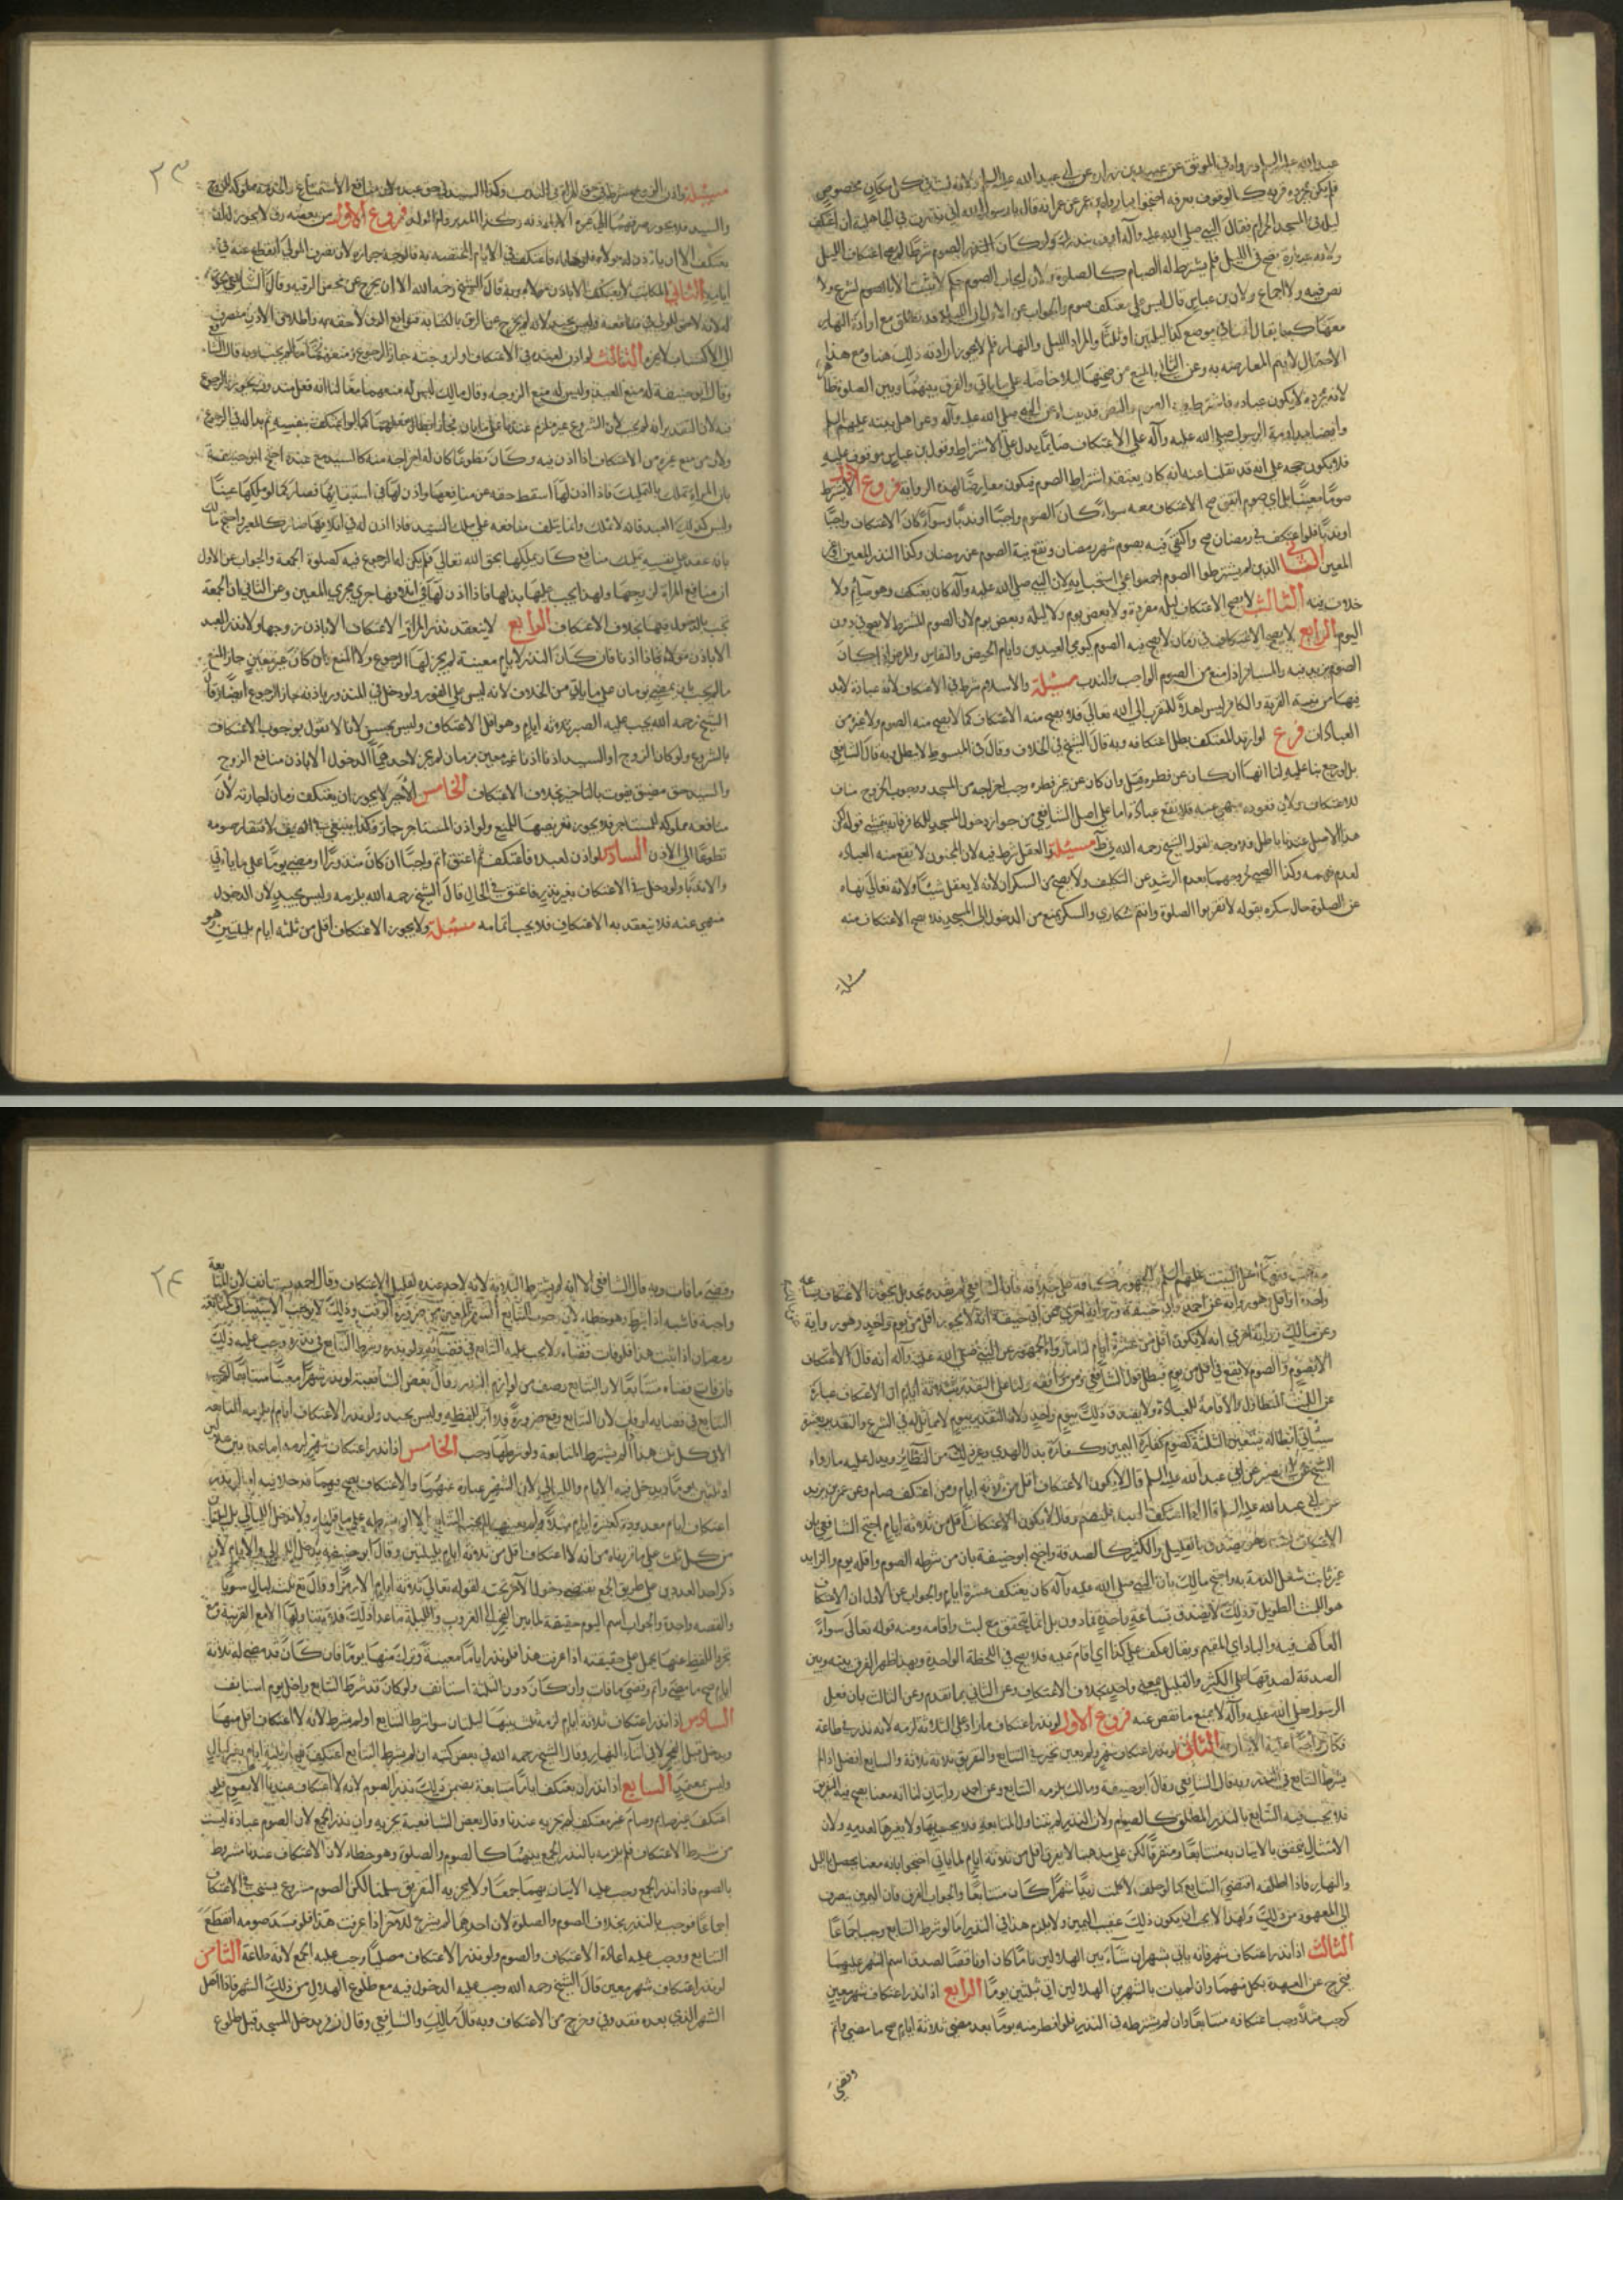 عبدالله عليه السلام وروى في الموثق عن عبيد بن زرارة عن ابي عبدالله عليه السلام ولانه لبث في مكان مخصوص
فلم يكن بمجرده قربة كالوقوف بعرفه احتجوا بما رواه ابن عمر عن عمر انه قال يا رسول الله اني نذرت في الجاهلية ان اعتكف
ليلة في المسجد الحرام فقال النبي صلى الله عليه وآله اوف بنذرك ولو كان الصوم شرطا لم يصح اعتكاف الليل
ولانه عبادة تصح في الليل فلم يشترط له الصيام كالصلوة ولان ايجاب الصوم حكم لا يثبت الا بالشرع ولا
نص فيه ولا اجماع ولان ابن عباس قال ليس على معتكف صوم والجواب عن الاول ان الليلة قد تطلق مع ارادة النهار
معها كما يقال اقمنا في موضع كذا ليلتين او ثلثا والمراد الليل والنهار فلم لا يجوز ارادته ذلك هنا ومع هذا
الاحتمال لا يتم المعارضة به وعن الثاني بالمنع من صحتها ليلا خاصة على ما ياتي والفرق بينهما وبين الصلوة ظاهر
لانه بمجرده لا يكون عبادة فاشترط فيه الصوم والنص قد بيناه عن النبي صلى الله عليه وآله وعن اهل بيته عليهم السلم
وايضا مداومة الرسول صلى الله عليه وآله على الاعتكاف صائما يدل على الاشتراط وقول ابن عباس موقوف عليه
فلا يكون حجة على انه قد نقلنا عنه انه كان يعتقد اشتراط الصوم فيكون معارضا لهذه الرواية فروع الاول لا يشترط
صوما معينا بل اي صوم اتفق صح الاعتكاف معه سواء كان الصوم واجبا او ندبا وسواء كان الاعتكاف واجبا
او ندبا فلو اعتكف في رمضان صح واكتفى فيه بصوم شهر رمضان وتقع نية الصوم عن رمضان وكذا النذر المعين وغير
المعين الثاني الذين لم يشترطوا الصوم اجمعوا على استحبابه لان النبي صلى الله عليه وآله كان يعتكف وهو صائم ولا
خلاف فيه الثالث لا يصح الاعتكاف ليلة مفردة ولا بعض يوم ولا ليلة وبعض يوم لان الصوم المشترط لا يصح في دون
اليوم الرابع لا يصح الاعتكاف في زمان لا يصح فيه الصوم كيومي العيدين وايام الحيض والنفاس والمرض اذا كان
الصوم يزيد فيه والمسافر اذا منع من الصوم الواجب والندب مسئلة والاسلام شرط في الاعتكاف لانه عبادة لابد
فيها من نية القربة والكافر ليس اهلا للتقرب الى الله تعالى فلا يصح منه الاعتكاف كما لا يصح منه الصوم ولا غيره من
العبادات فرع لو ارتد المعتكف بطل اعتكافه وبه قال الشيخ في الخلاف وقال في المبسوط لا يبطل وبه قال الشافعي
بل لو رجع بنا عليه لنا انها ان كان عن فطرة قتل وان كان عن غير فطرة وجب اخراجه من المسجد ووجوب الخروج مناف
للاعتكاف ولان قعوده منهي عنه فلا تقع عبادة اما على اصل الشافعي من جواز دخول المسجد للكافر فانه يتمشى قوله لكن
هذا الاصل عندنا باطل فلا وجه لقول الشيخ رحمه الله في ط مسئلة والعقل شرط فيه لان المجنون لا يقع منه العبادة
لعدم فهمه وكذا الصبي لخروجهما بعدم الرشد عن التكليف ولا يصح من السكران لانه لا يعقل شيئا ولانه تعالى نهاه
عن الصلوة حال سكره بقوله لا تقربوا الصلوة وانتم سكارى والسكر يمنع من الدخول الى المسجد فلا يصح الاعتكاف منه
مسئلة
٢٣
مسئلة واذن الزوج شرط في حق المراة في الندب وكذا السيد في حق عبده لان منافع الاستمتاع والخدمة مملوكة للزوج
والسيد فلا يجوز صرفهما الى غيره الا باذنه وكذا المدبر وام الولد فروع الاول من بعضه رق لا يجوز له ان
يعتكف الا ان ياذن له مولاه فلو هاياه فاعتكف في الايام المختصة به فالوجه جوازه لان تصرف المولى انقطع عنه في
ايامه الثاني المكاتب لا يعتكف الا باذن مولاه وبه قال الشيخ رحمه الله الا ان يخرج عن محض الرقية وقال الشافعي يجوز
الى الاكتساب لا غيره الثالث لو اذن لعبده في الاعتكاف او لزوجته جاز الرجوع ومنعهما ما لم يجب وبه قال الشافعي
وقال ابو حنيفة له منع العبد وليس له منع الزوجة وقال مالك ليس له منعهما معا لنا انه فعل مندوب فيجوز الرجوع
ولان من منع غيره من الاعتكاف اذا اذن فيه وكان تطوعا كان له اخراجه منه كالسيد مع عبده احتج ابو حنيفة
بان المراة تملك بالتمليك فاذا اذن لها اسقط حقه عن منافعها واذن لها في استيفائها فصار كما لو ملكها عينا
وليس كذلك العبد فانه لا يملك وانما يتلف منافعه على ملك السيد فاذا اذن له في اتلافها صار كالمعير واحتج مالك
بانه عقد على نفسه تمليك منافع كان يملكها بحق الله تعالى فلم يكن له الرجوع فيه كصلوة الجمعة والجواب عن الاول
تجب بالدخول فيها بخلاف الاعتكاف الرابع لا ينعقد نذر المراة الاعتكاف الا باذن زوجها ولا نذر العبد
الا باذن مولاه فاذا اذنا فان كان النذر لايام معينة لم يجز لها الرجوع ولا المنع وان كان غير معين جاز المنع
ما لم يجب بان يمضي يومان على ما ياتي من الخلاف لانه ليس على الفور ولو دخل في المنذور باذنه جاز الرجوع ايضا وقال
الشيخ رحمه الله يجب عليه الصبر ثلاثة ايام وهو اقل الاعتكاف وليس بحسن لانا لا نقول بوجوب الاعتكاف
بالشروع ولو كان الزوج او السيد اذنا اذنا غير معين بزمان لم يجز لاحدهما الدخول الا باذن منافع الزوج
والسيد حق مضيق يفوت بالتاخير بخلاف الاعتكاف الخامس الاجير لا يجوز ان يعتكف زمان اجارته لان
منافعه مملوكة للمستاجر فلا يجوز تفريقها للمنع ولو اذن المستاجر جاز وكذا ينبغي في الضيف لافتقار صومه
تطوعا الى الاذن السادس لو اذن لعبده فاعتكف ثم اعتق اتم واجبا ان كان منذورا او مضى يوما على ما ياتي
والا ندبا ولو دخل في الاعتكاف بغير اذنه فاعتق في الحال قال الشيخ رحمه الله يلزمه وليس بجيد لان الدخول
منهي عنه فلا ينعقد به الاعتكاف فلا يجب اتمامه مسئلة ولا يجوز الاعتكاف اقل من ثلثه ايام بليلتين وهو
واحدة او اقل وهو رواية عن احمد وابي حنيفة وفي رواية اخرى عن ابي حنيفة انه لا يجوز اقل من يوم واحد وهو رواية
وعن مالك رواية اخرى انه لا يكون اقل من عشرة ايام لنا ما رواه الجمهور عن النبي صلى الله عليه وآله انه قال لا اعتكاف
الا بصوم والصوم لا يقع في اقل من يوم فبطل قول الشافعي ومن وافقه ولنا على التقدير بثلاثة ايام ان الاعتكاف عبارة
عن اللبث المتطاول والاقامة للعبادة ولا يصدق ذلك بيوم واحد ولان التقدير بيوم لا مماثل له في الشرع والتقدير بعشرة
سياتي ابطاله فتعين الثلثة كصوم كفارة اليمين وكفارة بدل الهدي وغير ذلك من النظائر ويدل عليه ما رواه
الشيخ عن ابي بصير عن ابي عبد الله عليه السلم قال لا يكون الاعتكاف اقل من ثلاثة ايام ومن اعتكف صام وعن عمر بن يزيد
عن ابي عبد الله عليه السلم قال اذا اعتكف العبد فليصم وقال لا يكون الاعتكاف اقل من ثلاثة ايام احتج الشافعي بان
الاعتكاف لبث وهو يصدق بالقليل والكثير كالصدقة واحتج ابو حنيفة بان من شرطه الصوم واقله يوم والزايد
غير ثابت شغل الذمة به واحتج مالك بان النبي صلى الله عليه وآله كان يعتكف عشرة ايام والجواب عن الاول ان الاعتكاف
هو اللبث الطويل وذلك لا يصدق بساعة واحدة فما دون بل انما يتحقق مع لبث واقامة ومنه قوله تعالى سواء
العاكف فيه والباد اي المقيم ويقال عكف على كذا اي اقام عليه فلا يصح في اللحظة الواحدة وبهذا ظهر الفرق بينه وبين
الصدقة لصدقها على الكثير والقليل بمعنى واحد بخلاف الاعتكاف وعن الثاني بما تقدم وعن الثالث بان فعل
الرسول صلى الله عليه وآله لا يمنع ما نقص عنه فروع الاول لو نذر اعتكاف ما زاد على الثلاثة لزمه لانه نذر في طاعة
الثاني لو نذر اعتكاف شهر ولم يعين تخير في التتابع والتفريق ثلاثة ثلاثة والتتابع افضل اذا لم
يشترط التتابع في النذر وبه قال الشافعي وقال ابو حنيفة ومالك يلزمه التتابع وعن احمد روايتان لنا انه معنا يصح فيه التفريق
فلا يجب فيه التتابع بالنذر المطلق كالصيام ولان النذر لم يتناول المتابعة فلا يجب بها ولا بغيرها لعدمه ولان
الامتثال يتحقق بالاتيان به متتابعا ومتفرقا لكن على مذهبنا لا يفرق اقل من ثلاثة ايام لما ياتي احتجوا بانه معنا يحصل بالليل
والنهار فاذا اطلقه اقتضى التتابع كما لو حلف لا كلمت زيدا شهرا كان متتابعا والجواب الفرق فان اليمين ينصرف
الى المعهود من ذلك ولهذا لا يجب ان يكون ذلك عقيب اليمين ولا يلزم هذا في النذر اما لو شرط التتابع وجب اجماعا
الثالث اذا نذر اعتكاف شهر فانه ياتي بشهر ان شاء بين الهلالين تاما كان او ناقصا لصدق اسم الشهر عليهما
فيخرج عن العهدة بكل منهما وان لم يات بالشهر بين الهلالين اتى ثلثين يوما الرابع اذا نذر اعتكاف شهر معين
كرجب مثلا وجب اعتكافه متتابعا وان لم يشترطه في النذر فلو افطر منه يوما بعد مضي ثلاثة ايام صح ما مضى واتم
وقضى
٢٤
وقضى ما فات وبه قال الشافعي الا انه لم يشترط الثلاثة لانه لا حد عنده لقليل الاعتكاف وقال احمد يستانف لان المتابعة
واجبة فاشبه اذا شرط وهو خطاء لان وجوب التتابع الشهر المعين من ضرورة الوقت وذلك لا يوجب الاستيناف كمتابعة
رمضان اذا ثبت هذا فلو فات قضاه ولا يجب عليه التتابع في قضائه ولو نذره وشرط التتابع في نذره وجب عليه ذلك
فان فات قضاه متتابعا لان التتابع وصف من لوازم النذر وقال بعض الشافعية لو نذر شهرا معينا متتابعا لا يجب
التتابع في قضايه لو فات لان التتابع وقع ضرورة فلا اثر للفظه وليس بجيد ولو نذر الاعتكاف ايام لم يلزمه التتابع
الا في كل ثلث هذا اذا لم يشترط المتابعة ولو شرطها وجب الخامس اذا نذر اعتكاف شهر لزمه
او ثلثين يوما ويدخل فيه الايام والليالي لان الشهر عبارة عنهما والاعتكاف يصح فيهما فدخلا فيه
اعتكاف ايام معدودة كعشرة ايام مثلا ولم يعينها لم يجب التتابع الا ان يشرطه على ما قلناه ولا تدخل الليالي بل ليلتان
من كل ثلث على ما قررناه من انه لا اعتكاف اقل من ثلاثة ايام بليلتين وقال ابو حنيفة يدخل الليالي والايام لان
ذكر احد العددين على طريق الجمع يقتضي دخول الآخر تحته لقوله تعالى ثلاثة ايام الا رمزا وقال تع ثلث ليال سويا
والقصه واحدة والجواب اسم اليوم حقيقة لما بين الفجر الى الغروب والليلة ما عدا ذلك فلا يتناولها الا مع القرينة ومع
تجرد اللفظ عنها يحمل على حقيقته اذا عرفت هذا فلو نذر اياما معينة وترك منها يوما فان كان قد مضى له ثلاثة
ايام صح ما مضى واتم وقضى ما فات وان كان دون الثلثة استانف ولو كان قد شرط التتابع واخل بيوم استانف
السادس اذا نذر اعتكاف ثلاثة ايام لزمه ثلث بينها ليلتان سواء شرط التتابع او لم يشرط لانه لا اعتكاف اقل منها
ويدخل قبل الفجر لا في اثناء النهار وقال الشيخ رحمه الله في بعض كتبه ان لم يشرط التتابع اعتكف نهار ثلثة ايام بغير ليالي
وليس بمعتمد السابع اذا نذر ان يعتكف اياما متتابعة بصوم ضمن ذلك نذر الصوم لانه لا اعتكاف عندنا الا بصوم فلو
اعتكف غير صايم وصام غير معتكف لم يجزيه عندنا وقال بعض الشافعية يجزيه وان نذر الجمع لان الصوم عبادة ليست
من شرط الاعتكاف فلم يلزمه بالنذر الجمع بينهما كالصوم والصلوة وهو خطاء لان الاعتكاف عندنا مشروط
بالصوم فاذا نذر الجمع وجب عليه الاتيان بهما جمعا ولا يجزيه التفريق سلمنا لكن الصوم مشروع يستحب في الاعتكاف
اجماعا فوجب بالنذر بخلاف الصوم والصلوة لان احدهما لم يشرع للآخر اذا عرفت هذا فلو فسد صومه انقطع
التتابع ووجب عليه اعادة الاعتكاف والصوم ولو نذر الاعتكاف مصليا وجب عليه الجمع لانه طاعة الثامن
لو نذر اعتكاف شهر معين قال الشيخ رحمه الله وجب عليه الدخول فيه مع طلوع الهلال من ذلك الشهر فاذا اهل
الشهر الذي بعده فقد وفى وخرج من الاعتكاف وبه قال مالك والشافعي وقال زفر يدخل المسجد قبل طلوع